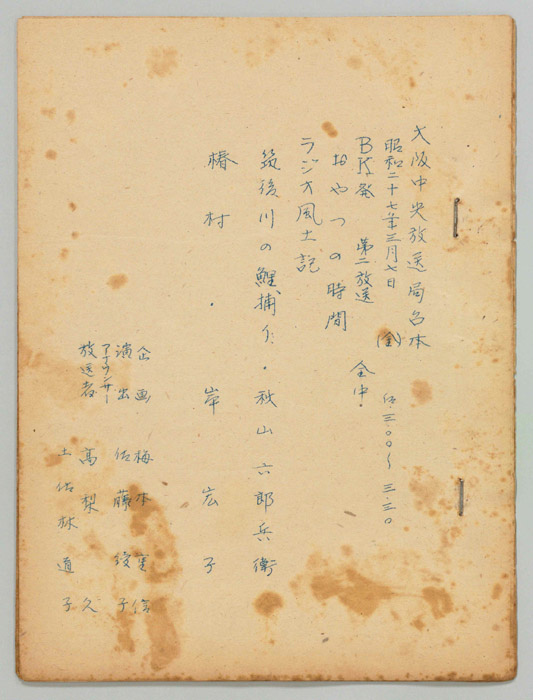 大阪中央放送局台本
昭和二十七年三月七日 (金) 后.三.〇〇〜三.三〇
BK発 第二放送 全中.
おやつの時間
ラジオ風土記
筑後川の鯉捕り.秋山六郎兵衛
椿村.岸宏子
企画 梅本重信
演出 佐藤 子
アナウンサー
放送者 高梨 久
土佐林道子